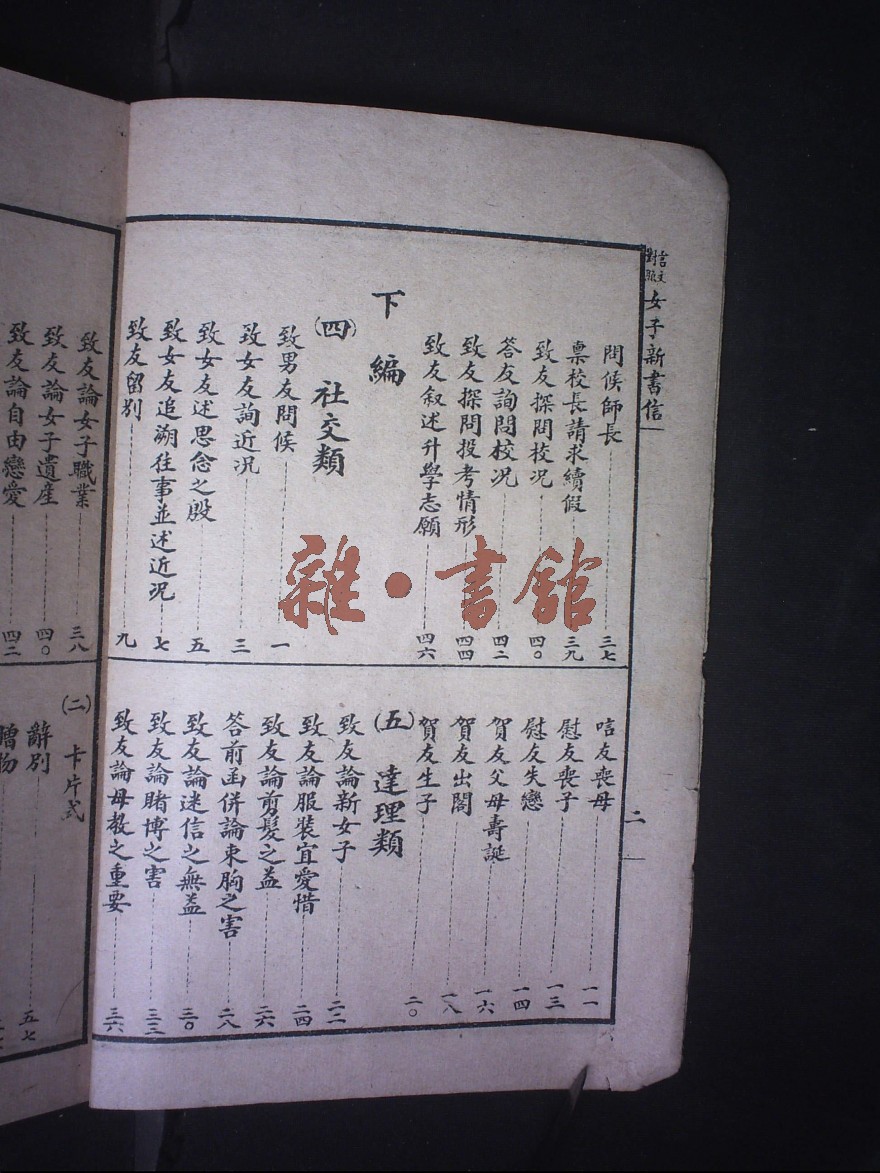 言文對照 女子新書信
二
問候師長 三七
禀校長請求續假 三九
致友探問校况 四〇
答友詢問校况 四二
致友探問投考情形 四四
致友叙述升學志願 四六
下編
(四) 社交類
致男友問候 一
致女友詢近况 三
致女友述思念之殷 五
致女友追溯往事並述近况 七
致友留别 九
唁友喪母 一一
慰友喪子 一三
慰友失戀 一四
賀友父母壽誕 一六
賀友出閣 一八
賀友生子 二〇
(五) 達理類
致友論新女子 二二
致友論服裝宜愛惜 二四
致友論剪髮之益 二六
答前函併論束胸之害 二八
致友論迷信之無益 三〇
致友論賭博之害 三三
致友論母教之重要 三六
致友論女子職業 三八
致友論女子遺產 四〇
致友論自由戀愛 四二
(二) 卡片式
辭别 五七
贈物
雜·書館